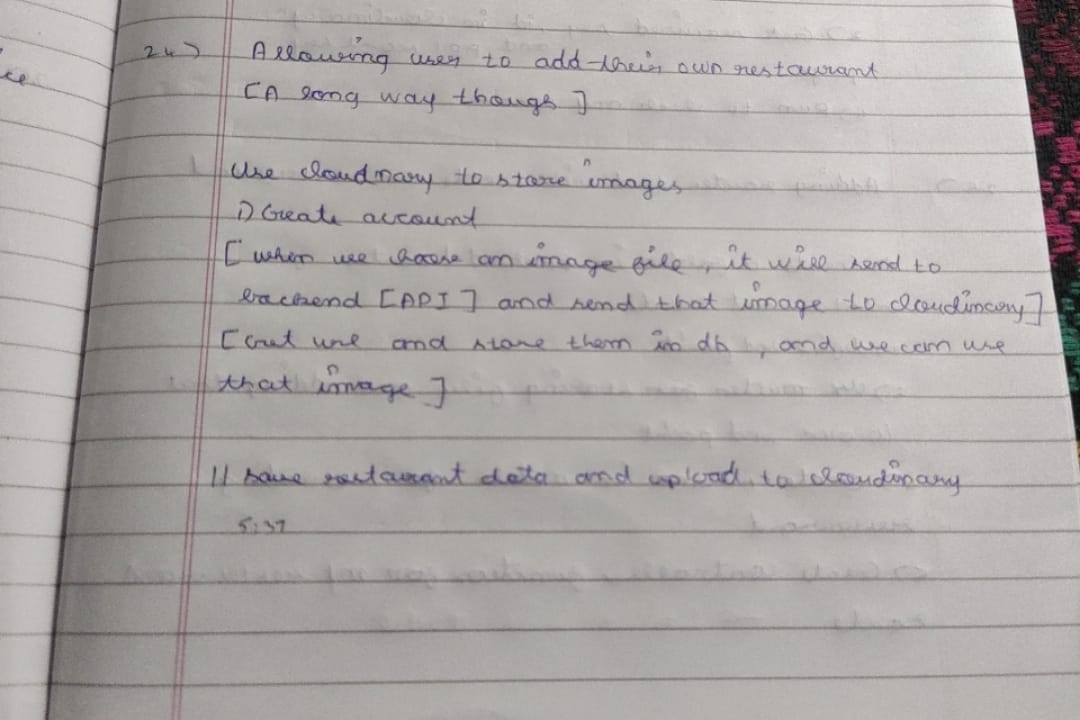 24) Allowing user to add their own restaurant
[A long way though]
Use cloudinary to store images
1) Create account
[when we choose an image file, it will send to
backend [API] and send that image to cloudinary]
[Get url and store them in db, and we can use
that image]
// save restaurant data and upload to cloudinary
5:37